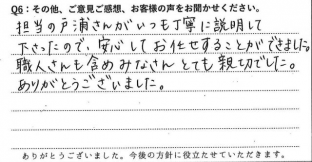 Q6：その他、ご意見ご感想、お客様の声をお聞かせください。
担当の戸浦さんがいつも丁寧に説明して
下さったので、安心してお任せすることができました。
職人さんも含めみなさんとても親切でした。
ありがとうございました。
ありがとうございました。今後の方針に役立たせていただきます。